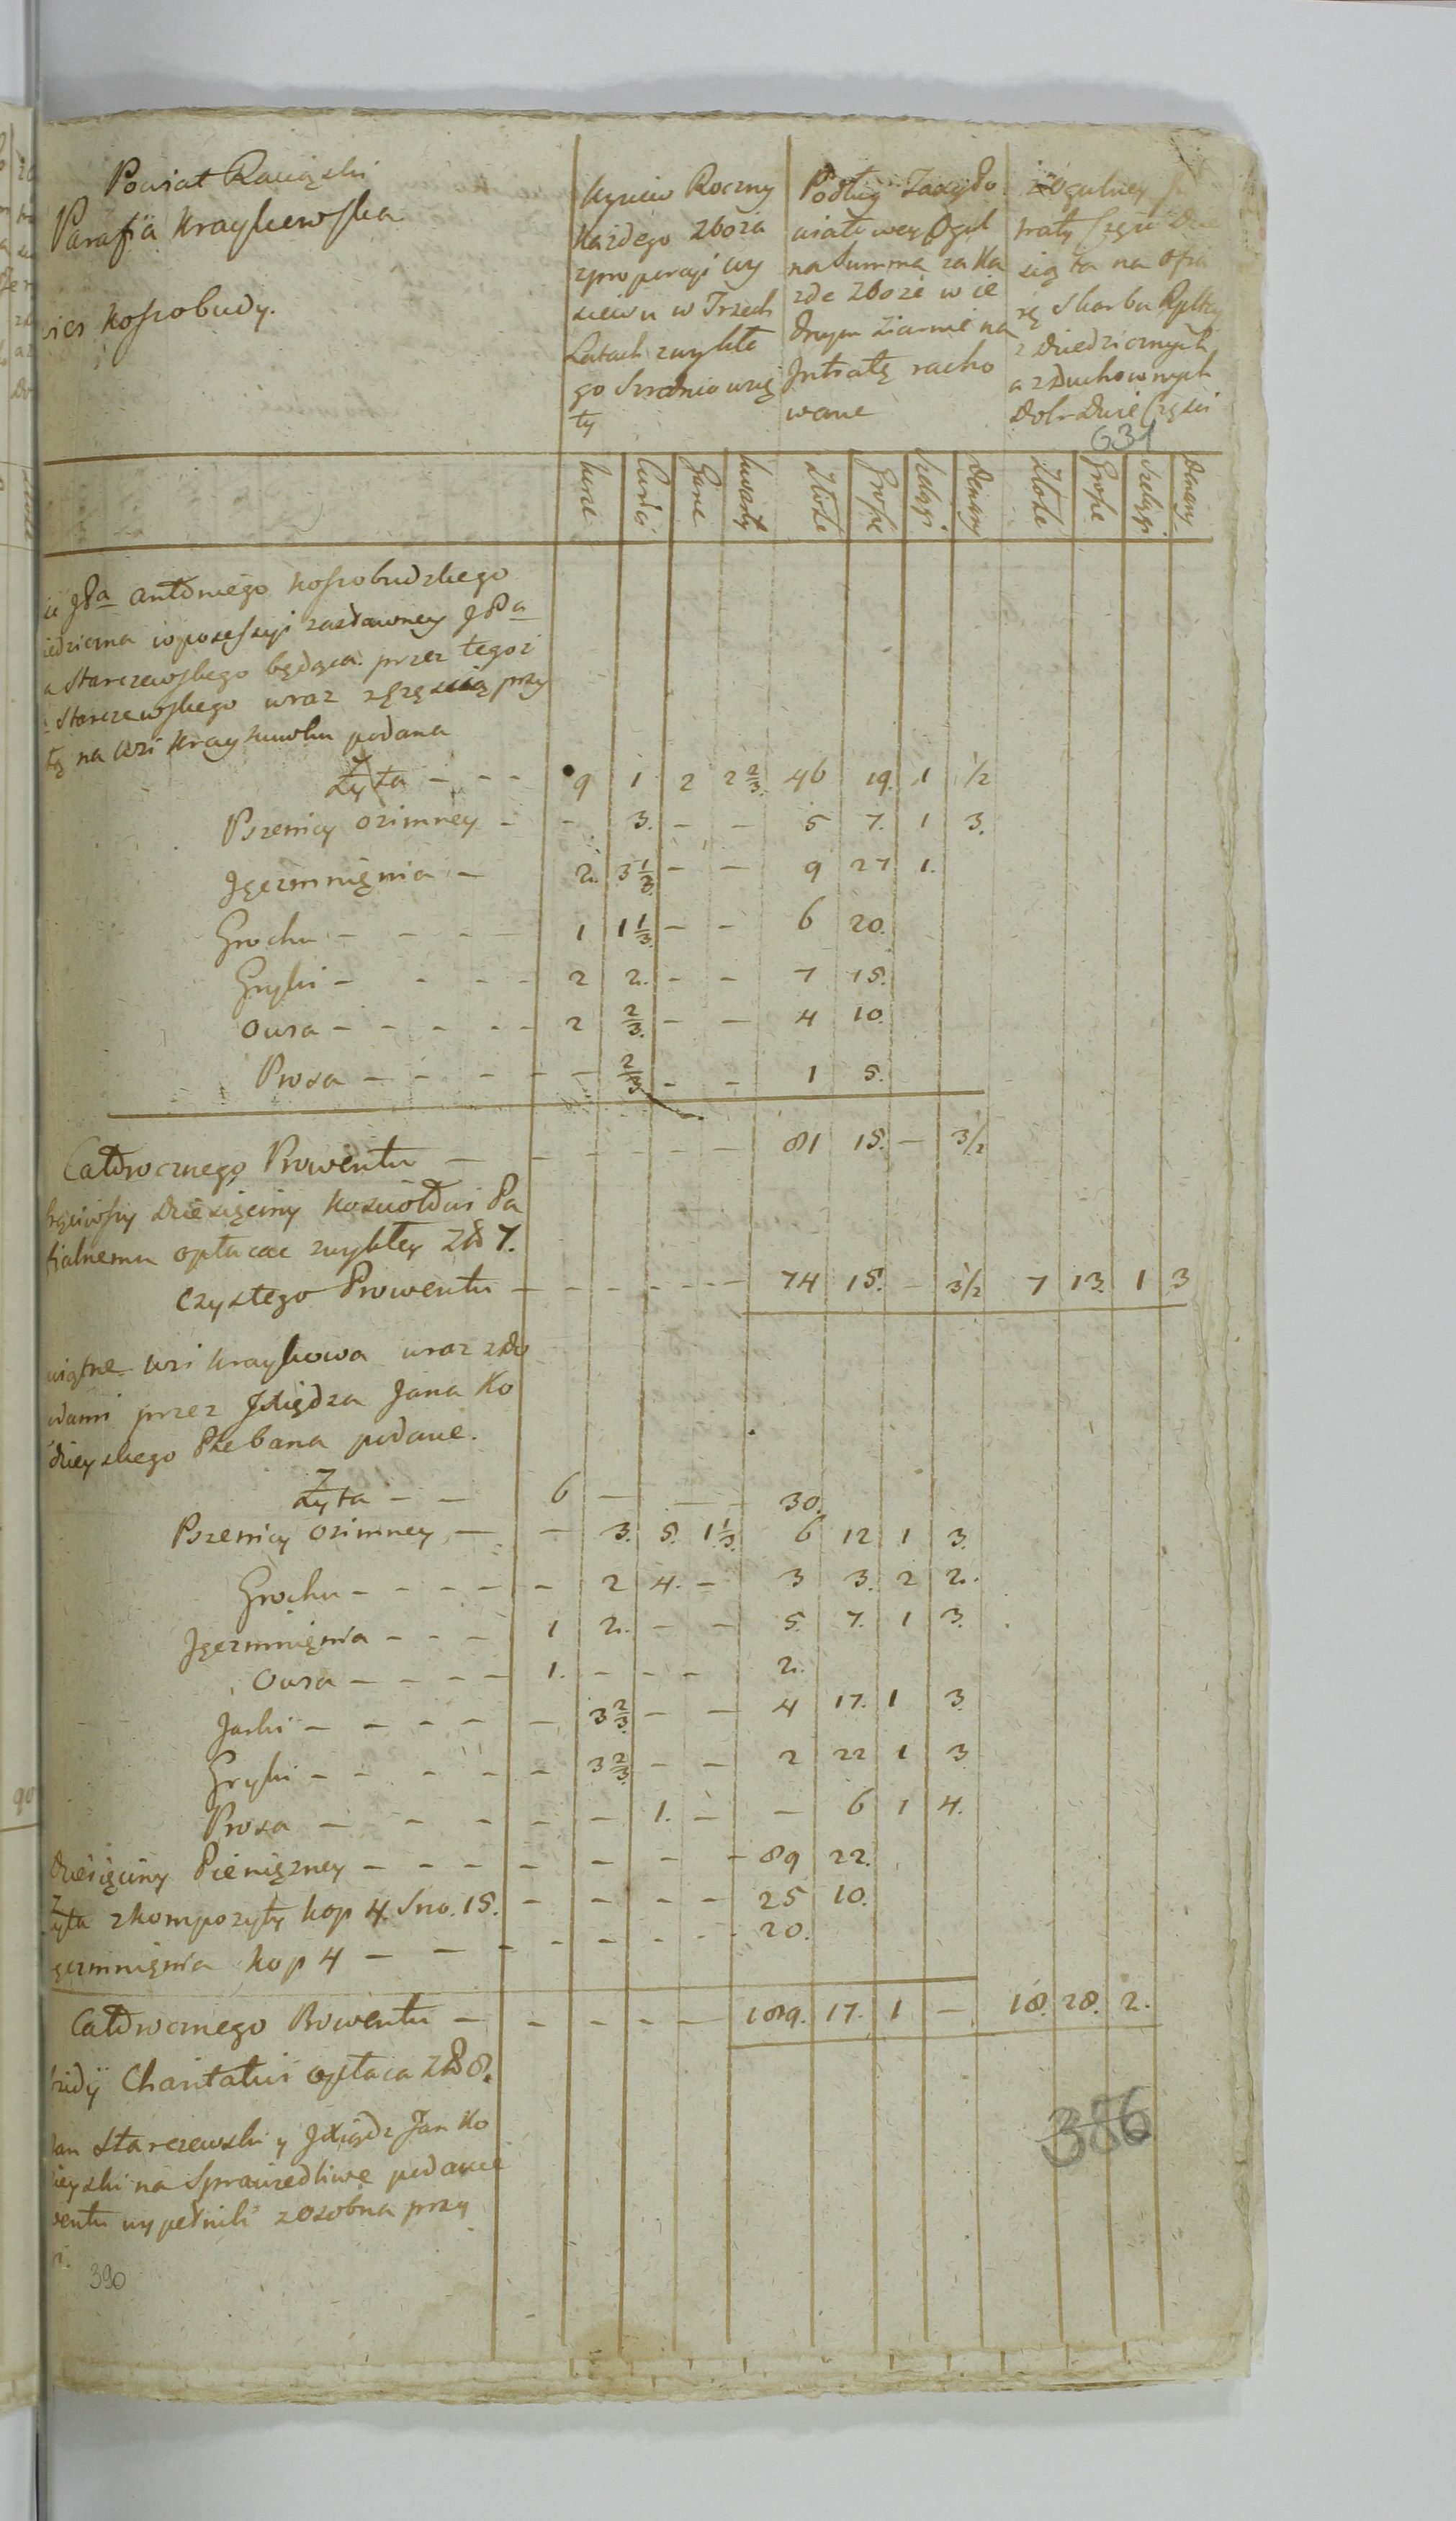 Powiat Raciązki
Parafia Kraykowska
wies Koszobudy.
Wysiew Roczny
Każdego zboża
zproporcyi wy
siewu w Trzech
Latach zwykłe
go Srednio wzię
ty
Podług Taxy Po
wiatowey Ogul
na Summa za Ka
zde Zboze w ie
dnym ziarnie na
Jntratę racho
wane
z ogulney
traty Część Dzie
sią ta na ofia
rę Skarbu Rpltey
z Dziedzicznych
a z Duchownych
Dobr Dwie Części
631
Korce Cwierci Garce Kwarty Złote Grosze Szelągi Denary Złote Grosze Szelągi Denary
JPa Antoniego Koszobudzkiego
iedziczna w possessyi zastawney JPa
a Starczewskiego będąca przez tegoż
Starczewskiego wraz z częscią przy
tą na Wsi Kraykowku podana
Zyta - - - 9 1 2 2 2/3. 46 19. 1 1/2
Pszenicy ozimney - - 3. - - 5 7. 1 3.
Jęczmnięnia - 2. 3 1/3. - - 9 27 1.
Grochu - - - - 1 1 1/3. - - 6 20.
Gryki - - - - 2 2. - - 7 15.
Owsa - - - - - 2 2/3. - - 4 10.
Prosa - - - - - 2/3 - - 1 5.
Całorocznego Prowentu - - - - - - 81 15. - 3 1/2
trąciwszy Dziesięciny Kosciołowi Pa
fialnemu opłacac zwykłey Zł 7.
Czystego Prowentu - - - - - - 74 15. - 3 1/2 7 13. 1 3
wiątne wsi Kraykowa wraz z Do
dami przez JXiędza Jana Ko
dzieyskiego Plebana podane.
Zyta - - 6 - - - 30.
Pszenicy Ozimney - - 3. 5. 1 1/3. 6 12 1 3.
Grochu - - - - - 2 4. - 3 3. 2 2.
Jęczmnięnia - - - 1 2. - - 5. 7. 1 3.
Owsa - - - - 1. - - - 2.
Jarki - - - - - 3 2/3. - - 4 17. 1 3
Gryki - - - - - 3 2/3. - - 2 22 1 3
Prosa - - - - - - 1. - - 6 1 4.
Dziesięciny Pienięzney - - - - - - - 89 22.
Zyta zkompozyty kop 4. Sno. 15. - - - - 25 10.
ęczmnięnia kop 4 - - - - - - - 20.
Całorocznego Prowentu - - - - - 189. 17. 1 - 18. 28. 2.
bsidÿ Charitativi opłaca Zł 8.
Pan Starczewski y JXiądz Jan Ko
zieyski na Sprawiedliwe podanie
wentu wypełnili zosobna przy
386
390